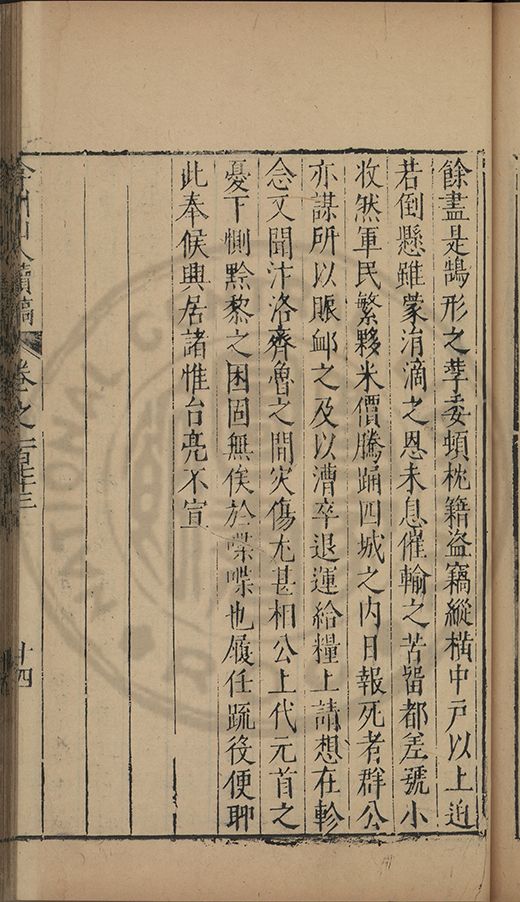 餘盡是鵠形之孽委頓枕籍盜竊縱横中戸以上迫
若倒懸雖蒙涓滴之恩未息催輸之苦畱都差號小
收然軍民繁夥米價騰踊四城之内日報死者群公
亦謀所以賑邮之及以漕卒退運給糧上請想在軫
念又聞汴洛齊魯之間灾傷尤甚相公上代元首之
憂下惻黔黎之困固無俟於喋喋也履任疏役便聊
此奉候興居諸惟台亮不宣
弇州山人續稿
卷之一百
十四